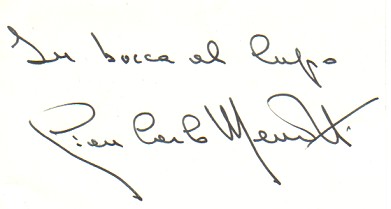 In bocca al lupo
Gian Carlo Menotti